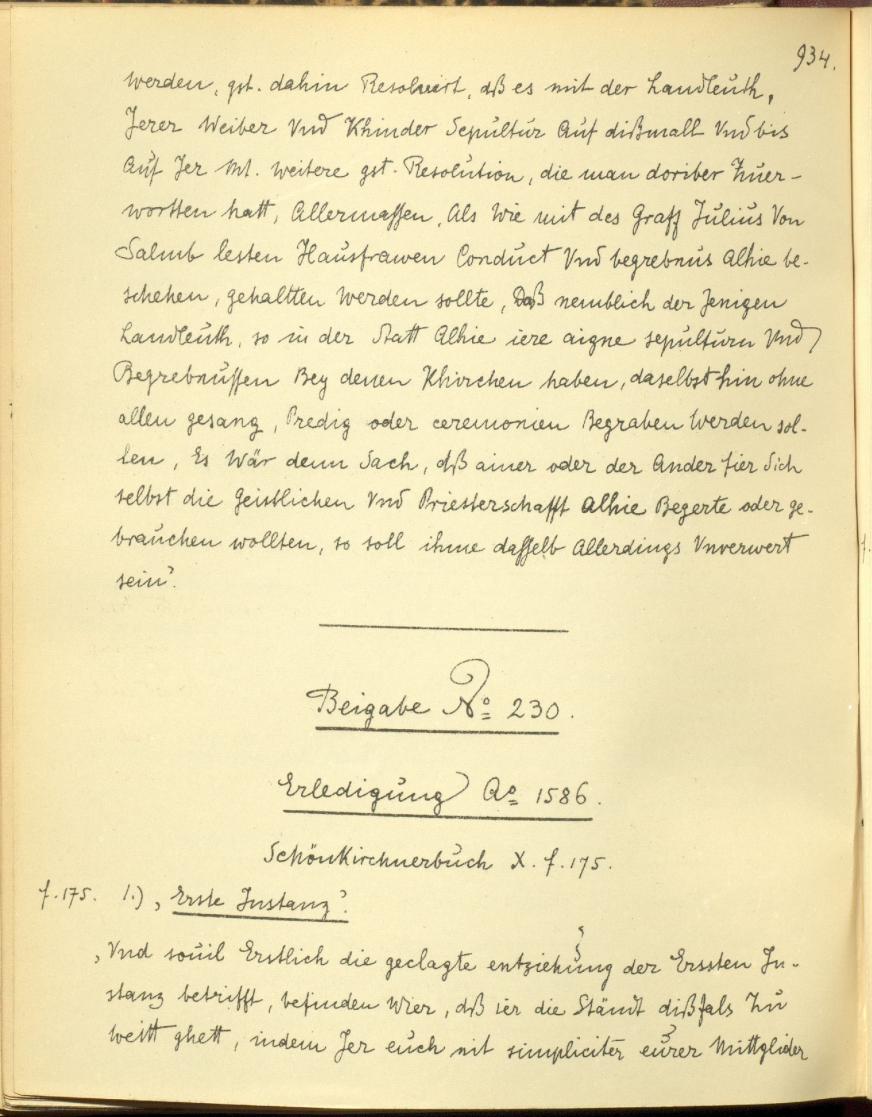 934.
werden, gst. dahin Resoluiert, dß es mit der Landleuth,
Jerer Weiber Vnd Khinder Sepultur Auf dißmall Vnd bis
Auf Jer Mt. weitere gst. Resolution, die man doriber Zuer-
wortten hatt, Allermassen, Als Wie mit des Graff Julius Von
Salmb lesten Hausfrawen Conduct Vnd begrebnus Alhie be-
schehen, gehaltten Werden sollte, Daß nemblich der Jenigen
Landleuth, so in der Statt Alhie iere aigne sepulturn Vnd
Begrebnussen Bey denen Khirchen haben, daselbst hin ohne
allen gesang, Predig oder ceremonien Begraben Werden sol-
len, Es Wär denn Sach, dß ainer oder der Ander fier Sich
selbst die Geistlichen Vnd Priesterschafft Alhie Begerte oder ge-
brauchen wollten, so soll ihme dasselb Allerdings Vnverwert
sein".
Beigabe No 230.
Erledigung Ao 1586.
Schönkirchnerbuch X. f. 175.
f. 175. 1.) „Erste Instanz".
„Vnd souil Erstlich die geclagte entziehung der Erssten In-
stanz betrifft, befinden Wier, dß ier die Ständt dißfals Zu
weitt ghett, indem Jer euch nit simpliciter eurer Mittglider